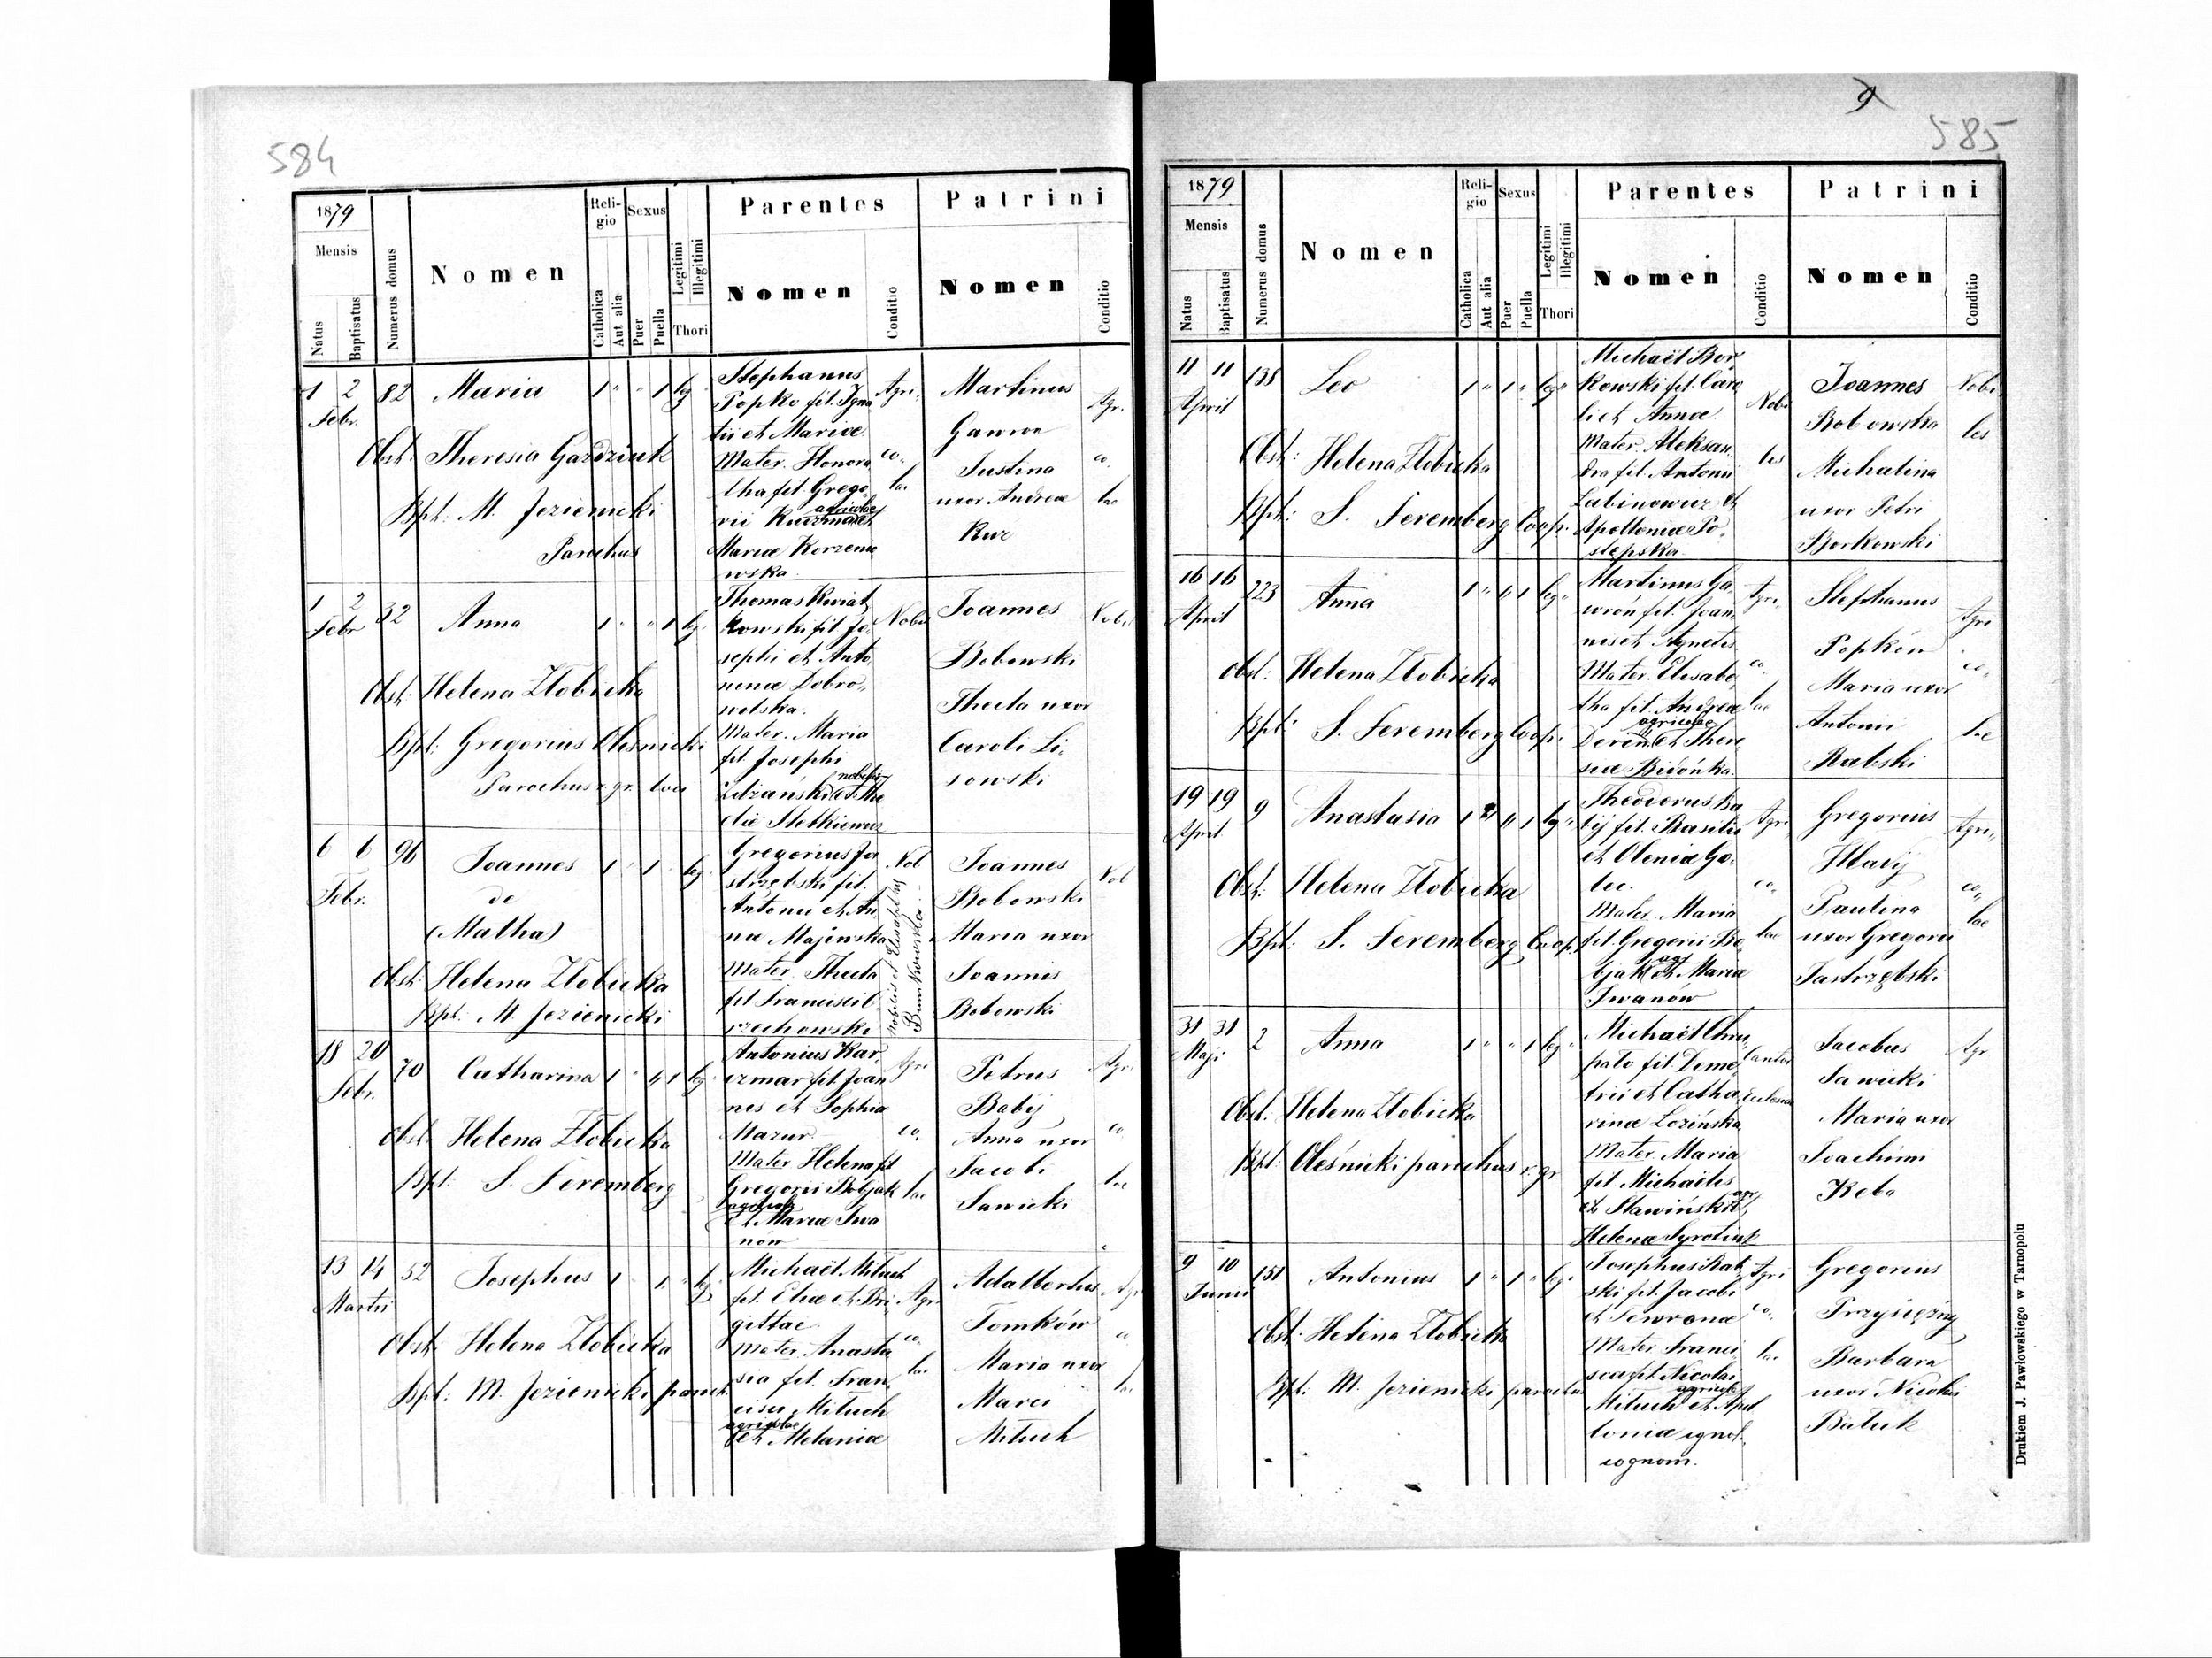 584
1879
Mensis
Natus
Baptisatus
Numerus domus
Nomen
Religio
Catholica
Aut alia
Sexus
Puer
Puella
Legitimi
Illegitimi
Thori
Parentes
Nomen
Conditio
Patrini
Nomen
Conditio
1 2 82 Maria 1 " " 1 leg
Febr.
Obst: Theresia Gardziuk
Bpt: M. Jezienicki
Parochus
Stephanus
Popko fil. Igna
tii et Mariae
Mater. Honora
tha fil. Grego
rii Kuczma et
agricolae
Mariae Korzenio
wska
Agri
co,
lae
Martinus
Gawron
Justina
uxor Andreae
Kuz
Agr.
co,
lae
1 2 32 Anna 1 " " 1 leg.
Febr
Obst: Helena Złobicka
Bpt: Gregorius Oleśnicki
Parochus r. gr. loci
Thomas Kwiat
kowski fil. Jo
sephi et Anto
ninae Dobro,,
wolska.
Mater. Maria
fil. Josephi
nobilis
et The
clae Stetkiewicz
Nobi
Joannes
Bobowski
Thecla uxor
Caroli Li
sowski
Nobi
6 6 96 Joannes 1 " 1 leg
Febr.
de
(Matha)
Obst: Helena Złobicka
Bpt: M. Jezienicki
Gregorius Ja
strzębski fil.
Antonii et An
nae Majewska
Mater. Thecla
fil Francisci b
rzuchowski
Nob
Nobilis et Elisabethae
Joannes
Bobowski
Maria uxor
Joannis
Bobowski
Nob
18 20 70 Catharina 1 " " 1 leg
Febr.
Obst: Helena Złobicka
Bpt: S. Feremberg
Antonius Kar,,
czmar fil. Joan
nis et Sophiae
Mazur
Mater Helena fil
Gregorii Bobjak
agricolae
et Mariae Iwa
nów
Agri
co,
lae
Petrus
Babÿ
Anna uxor
Jacobi
Sawicki
Agri
co
lae
13 14 52 Josephus 1 " 1 " leg
Martii
Obst: Helena Złobicka
Bpt: M. Jezienicki paroch.
Michaël Mituch
fil. Eliae et Bri
gittae
Mater. Anasta
sia fil. Fran
cisci Mituch
agricolae
et Melaniae
Agri
co,
lae
Adalbertus
Tomków
Maria uxor
Marci
Mituch
Agri
co
lae
9
585
1879
Mensis
Natus
Baptisatus
Numerus domus
Nomen
Religio
Catholica
Aut alia
Sexus
Puer
Puella
Legitimi
Illegitimi
Thori
Parentes
Nomen
Conditio
Patrini
Nomen
Conditio
11 11 138 Leo 1 " 1 " leg"
April
Obst: Helena Złobicka
Bpt: S. Feremberg Coop.
Michaël Bor
kowski fil. Caro
li et Annae
Mater. Aleksan
dra fil. Antonii
Labinowicz et
Apolloniae Po,
stępska
Nobi
les
Joannes
Bobowska
Michalina
uxor Petri
Borkowski
Nobi
les
16 16 223 Anna 1 " " 1 leg"
April
Obst: Helena Złobicka
Bpt: S. Feremberg Coop.
Martinus Ga
wroń fil. Joan
nis et Agnetis
Mater. Elisabe
tha fil. Andreae
agricolae
Deren et There
siae
Agri
co,
lae
Stephanus
Popków
Maria uxor
Antonii
Rabski
Agri
co,
lae
19 19 9 Anastasia 1 " " 1 leg"
April
Obst: Helena Złobicka
Bpt: S. Feremberg Coop.
Theodorus Ba
bÿ fil. Basilii
et Oleniae Go,
lec.
Mater. Maria
fil. Gregorii Bo
agr
bjak et Mariae
Iwanów
Agri
co,
lae
Gregorius
Hławÿ
Paulina
uxor Gregorii
Jastrzębski
Agri,,
co,
lae
31 31 2 Anna 1 " " 1 leg"
Maji
Obst. Helena Złobicka
Bpt: Oleśnicki parochus r. gr
Michaël Chru
pało fil. Deme
trii et Catha
rinae Lozińska
Mater. Maria
fil Michaëlis
Sławiński et
agr
Helenae Syrotiuk
Cantor
Jacobus
Sawicki
Maria uxor
Joachimi
Keba
Agr.
9 10 151 Antonius 1 " 1 " leg"
Junii
Obst: Helena Złobicka
Bpt: M. Jezienicki parochus
Josephus Rab
ski fil. Jacobi
et Fewronae
Mater Franci
sca fil Nicolai
agricolae
Mituch et Apol
loniae ignot.
cognom.
Agri
co.
lae
Gregorius
Przysiężny
Barbara
uxor Nicolai
Baluk
Drukiem J. Pawłowskiego w Tarnopolu